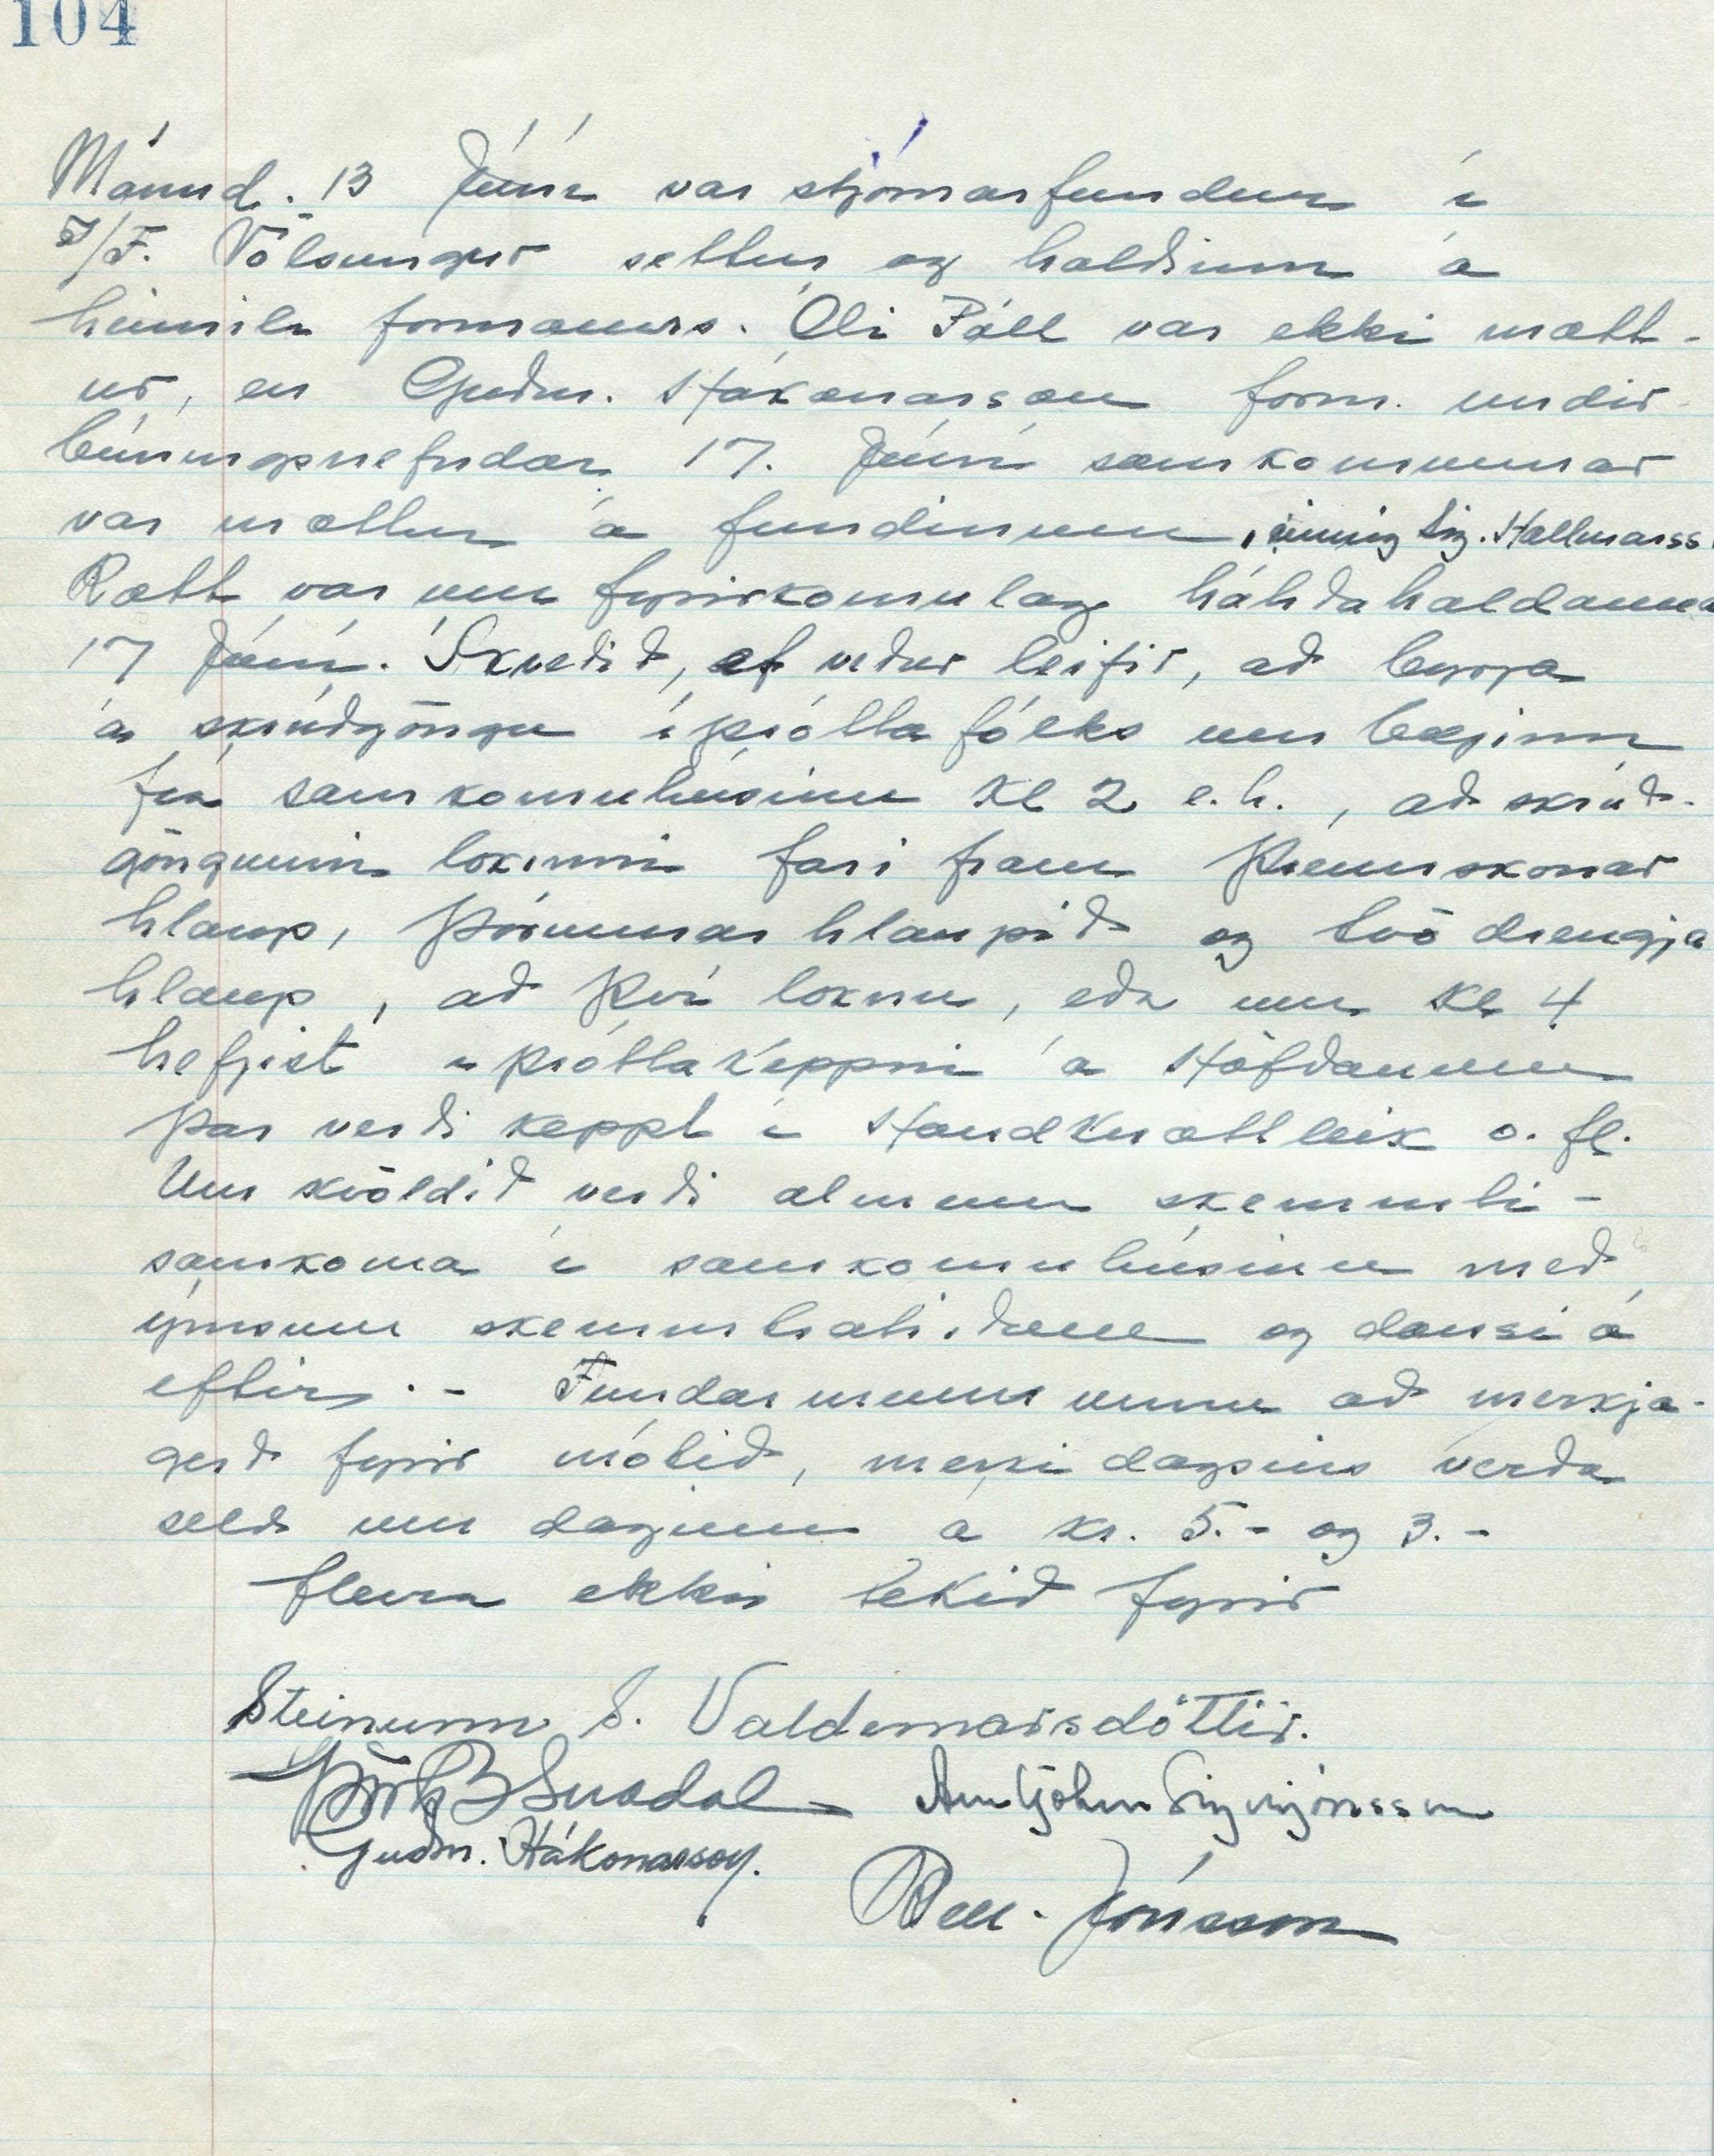 104
Mánud. 13 Júní var stjórnarfundur í
Í/F. Völsungur settur og haldinn á
heimili formanns. Óli Páll var ekki mætt-
ur, en Guðm. Hákonarson form. undir
búningsnefndar 17. Júní samkomunnar
var mættur á fundinum, einnig Sig. Hallmarss.
Rætt var um fyrirkomulag hátíðahaldanna
17 Júní. Ákveðið, ef veður leifir, að byrja
á skrúðgöngu íþróttafólks um bæjinn
frá samkomuhúsinu kl 2 e.h., að skrúð-
göngunni lokinni fari fram Kvennskonar
hlaup, þórunnar hlaupið og tvö drengja
hlaup, að því loknu, eða um kl 4
hefjist íþróttakeppni á Höfðanum
þar verði keppt í Handknattleik o. fl.
Um kvöldið verði almenn skemmti-
samkoma í samkomuhúsinu með
ýmsum skemmtiatriðum og dansi á
eftir. - Fundarmenn unnu að merkja-
gerð fyrir mótið, merki dagsins verða
seld um daginn á kr. 5.- og 3.-
fleira ekki tekið fyrir
Steinunn S. Valdemarsdóttir.
Þórh B Snædal Arnljótur Sigurjónsson
Guðm. Hákonarson.
Jónsson